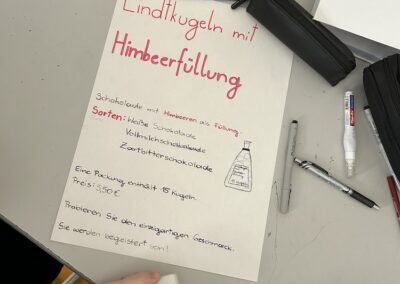 Lindtkugeln mit
Himbeerfüllung
Schokolade mit Himbeeren als Füllung.
Sorten: Weiße Schokolade
Vollmilchschokolade
Zartbitterschokolade
Eine Packung enthält 15 Kugeln.
Preis: 3,50€
Probieren Sie den einzigartigen Geschmack.
Sie werden begeistert sein!